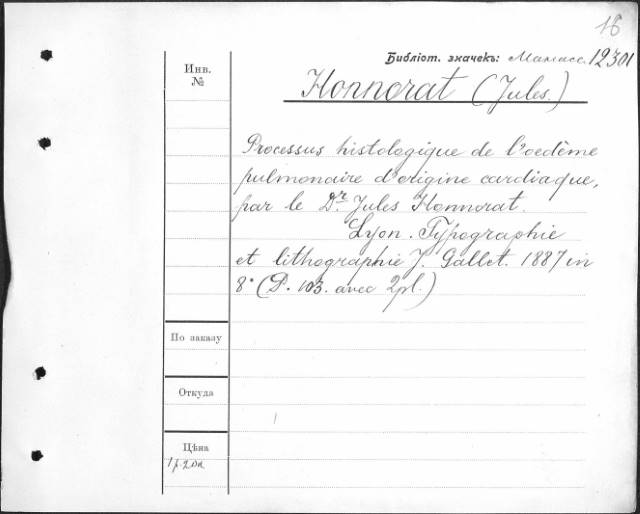 16
Библіот. значекъ: 12301
Инв.
№
Honnorat (Jules.)
Processus histologique de l'oedême
pulmonaire d'origine cardiaque,
par le Dr. Jules Honnorat.
Lyon. Typographie
et lithographie J. Gallet. 1887 in
8° (P. 103. avec 2 pl.)
По заказу
Откуда
Цѣна
1 р. 20 к